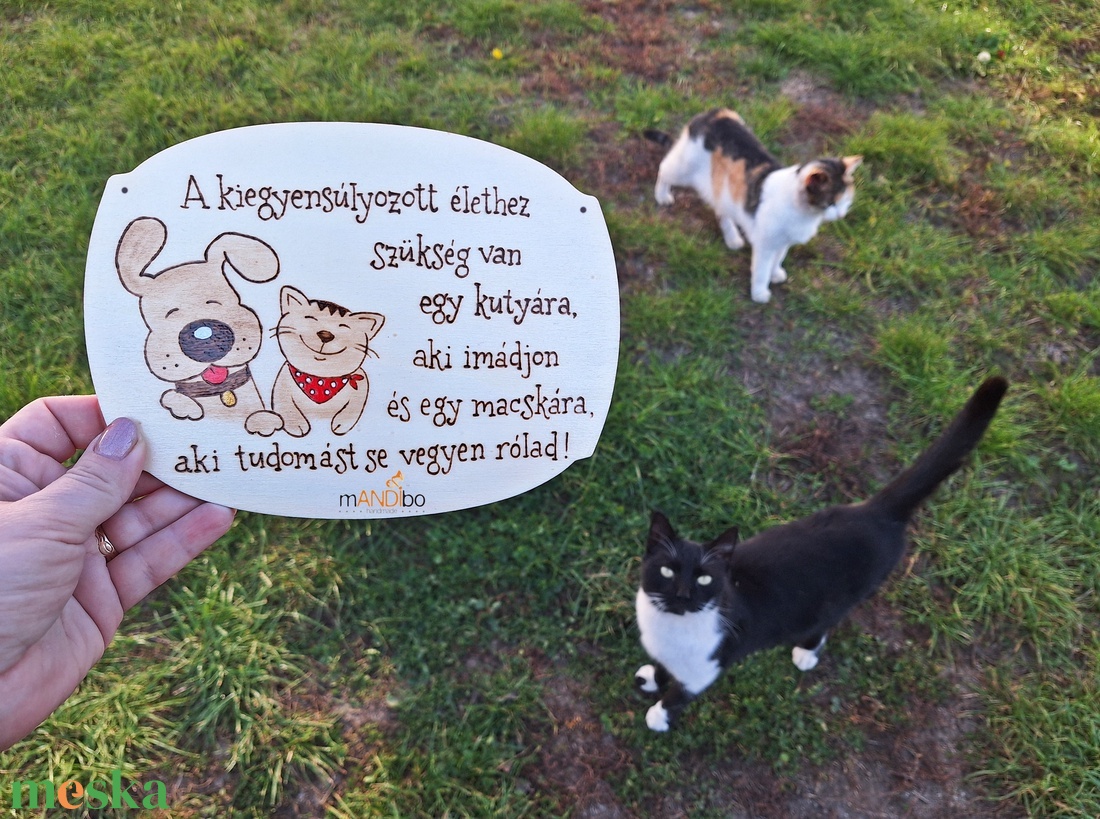 A kiegyensúlyozott élethez
szükség van
egy kutyára,
aki imádjon
és egy macskára,
aki tudomást se vegyen rólad!
mANDIbo
handmade
meska